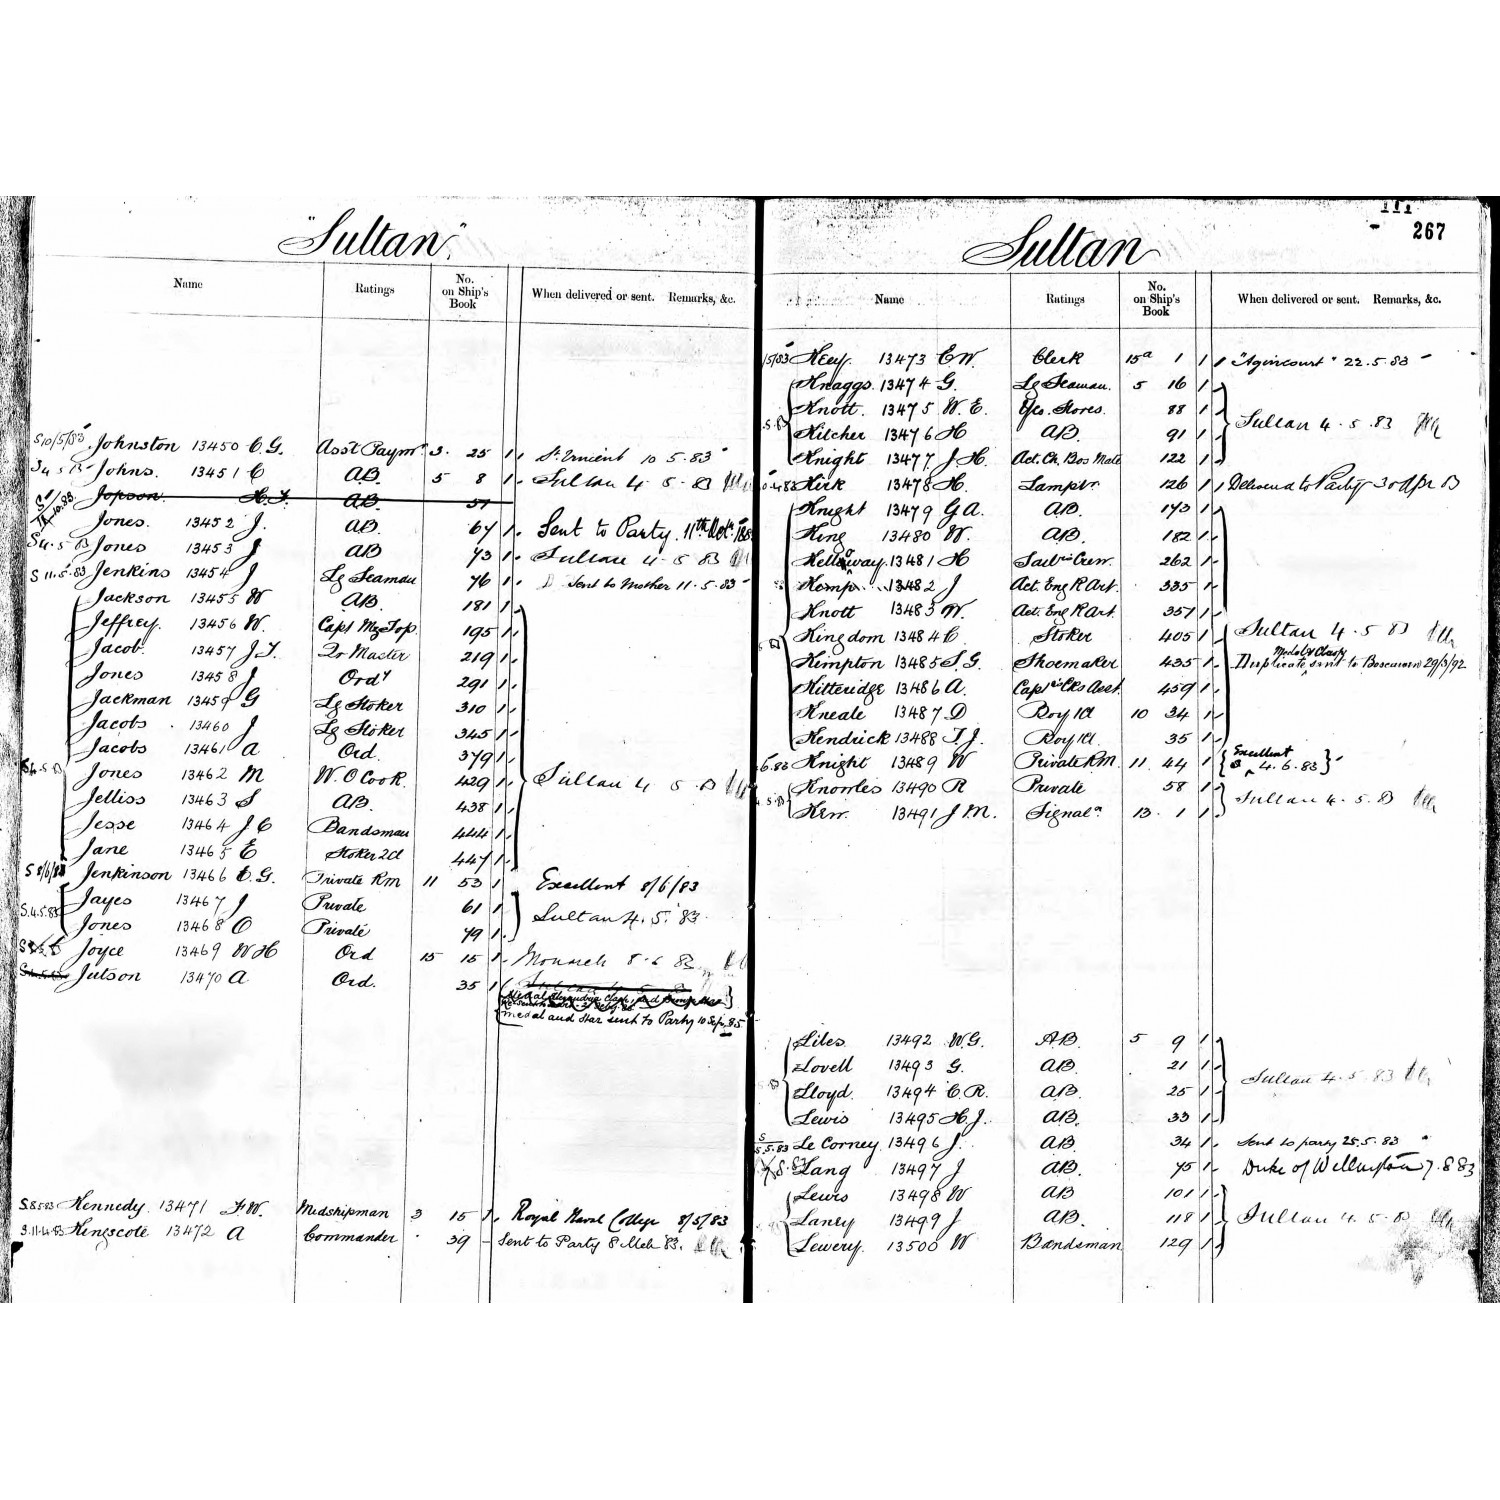 "Sultan"
Name Ratings No. on Ship's Book When delivered or sent. Remarks, &c.
S10/5/83 Johnston 13450 C.G. Asst Paymr 3. 25 1 St. Vincent 10 5.83
S4 5 83 Johns. 13451 C AB. 5 8 1 Sultan 4. 5. 83
Jopson. H.J. AB. 51
Jones. 13452 J. AB. 67 1 Sent to Party. 11th Octr.
S4. 5 83 Jones 13453 J AB 73 1 Sultan 4. 5. 83
S 11.5.83 Jenkins 13454 J Lg Seaman 76 1 Sent to Mother 11. 5. 83
Jackson 13455 W AB. 181 1
Jeffrey. 13456 W. Capt Mz Top. 195 1
Jacob. 13457 J.T. Qr Master 219 1
Jones 13458 J Ordy 291 1
Jackman 13459 G Lg Stoker 310 1
Jacobs 13460 J Lg Stoker 345 1
Jacobs 13461 A Ord. 379 1
S4.5.83 Jones 13462 M W.O Cook 429 1 Sultan 4 5. 83
Jelliss 13463 S AB. 438 1
Jesse 13464 J.C Bandsman 444 1
Jane 13465 E Stoker 2Cl 447 1
S 8/6/83 Jenkinson 13466 E.G. Private RM 11 53 1 Excellent 8/6/83
Jayes 13467 J Private 61 1
S.4.5.83 Jones 13468 O Private 79 1 Sultan 4. 5. 83.
Joyce 13469 W H Ord 15 15 1 Monarch 8. 6 83
Jutson 13470 A Ord. 35 1
Medal and Star sent to Party 10 Sep. 85
S.8.5.83 Kennedy. 13471 F.W. Midshipman 3 15 1. Royal Naval College 8/5/83
S.11.4.83 Kingscote 13472 A Commander 39 Sent to Party 8 Mch 83.
267
Sultan
Name Ratings No. on Ship's Book When delivered or sent. Remarks, &c.
15/83 Key. 13473 E W. Clerk 15a 1 1 "Agincourt" 22.5.83
Knaggs. 13474 G. Lg Seaman. 5 16 1
Knott. 13475 W. E. Yeo. Stores. 88 1
Kitcher 13476 H AB. 91 1 Sultan 4. 5. 83
Knight 13477 J.H. Act. Ch. Bos Mate 122 1
Kirk 13478 H. Lamptr. 126 1 Delivered to Party 30 Apr 83
Knight 13479 G A. AB. 173 1
King 13480 W. AB. 182 1
Kelloway. 13481 H Sailrs Crew. 262 1
Kemp 13482 J Act. Eng R Art. 335 1
Knott 13483 W. Act. Eng R Art. 357 1
Kingdom 13484 C. Stoker 405 1 Sultan 4. 5. 83
Kimpton 13485 S. G. Shoemaker 435 1 Duplicate Medal & Clasp sent to Boscawen 29/3/92
Kitteridge 13486 A. Capts Cks Asst. 459 1
Kneale 13487 D Boy 1Cl 10 34 1
Kendrick 13488 T J. Boy 1Cl. 35 1
6.83 Knight 13489 W Private RM. 11. 44 1 Excellent 4.6.83
Knowles 13490 R Private 58 1
Kerr. 13491 J M. Signaln 13. 1 1 Sultan 4. 5. 83
Liles. 13492 W.G. AB. 5 9 1
Lovell 13493 G. AB. 21 1
Lloyd. 13494 C.R. AB. 25 1 Sultan 4. 5. 83
Lewis 13495 H.J. AB. 33 1
5.5.83 Le Corney 13496 J. AB. 34 1 Sent to party 25.5.83
Lang 13497 J AB. 75 1 Duke of Wellington 7.8 83
Lewis 13498 W AB 101 1
Laney 13499 J AB. 118 1 Sultan 4. 5. 83
Lewery. 13500 W Bandsman 129 1